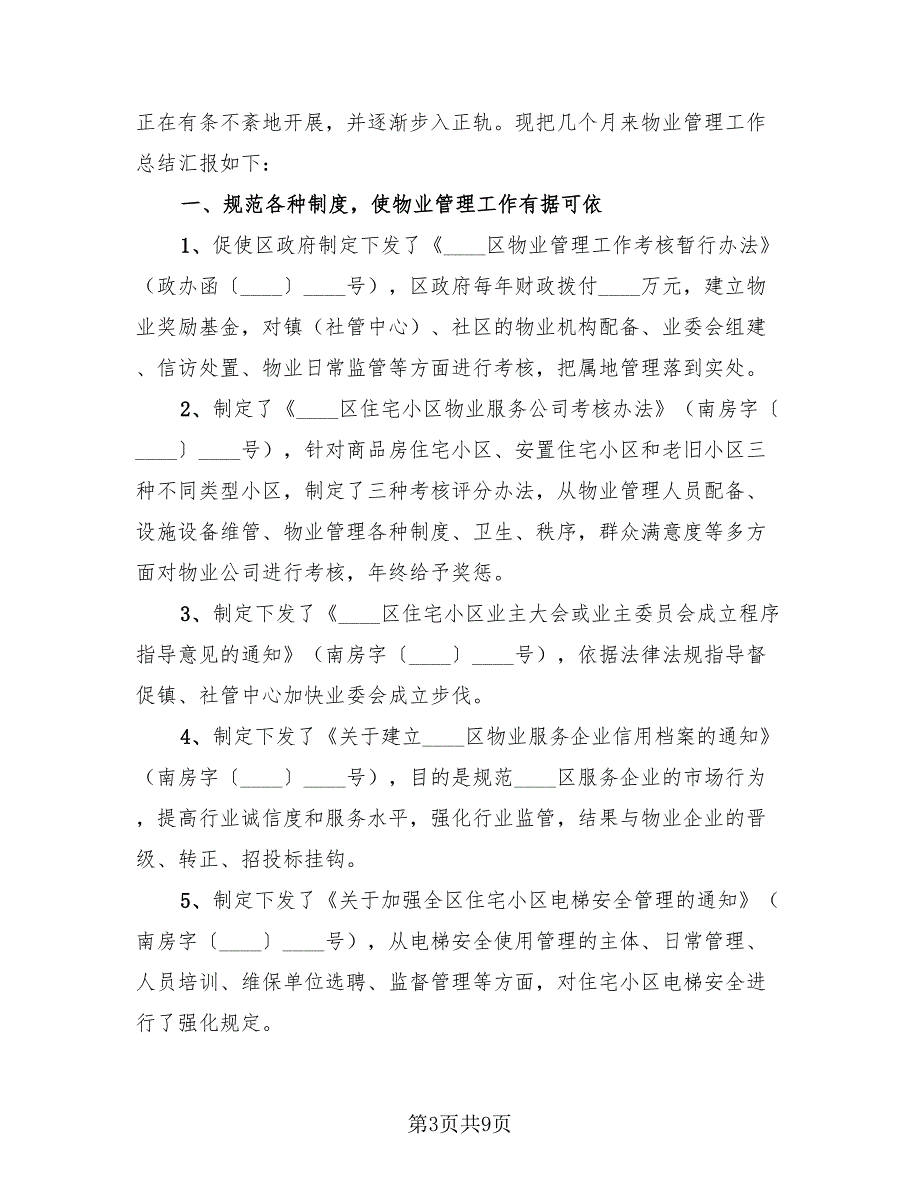 正在有条不紊地开展，并逐渐步入正轨。现把几个月来物业管理工作
总结汇报如下：
一、规范各种制度，使物业管理工作有据可依
1、促使区政府制定下发了《____区物业管理工作考核暂行办法》
（政办函〔____〕____号），区政府每年财政拨付____万元，建立物
业奖励基金，对镇（社管中心）、社区的物业机构配备、业委会组建
、信访处置、物业日常监管等方面进行考核，把属地管理落到实处。
2、制定了《____区住宅小区物业服务公司考核办法》（南房字〔
____〕____号），针对商品房住宅小区、安置住宅小区和老旧小区三
种不同类型小区，制定了三种考核评分办法，从物业管理人员配备、
设施设备维管、物业管理各种制度、卫生、秩序，群众满意度等多方
面对物业公司进行考核，年终给予奖惩。
3、制定下发了《____区住宅小区业主大会或业主委员会成立程序
指导意见的通知》（南房字〔____〕____号），依据法律法规指导督
促镇、社管中心加快业委会成立步伐。
4、制定下发了《关于建立____区物业服务企业信用档案的通知》
（南房字〔____〕____号），目的是规范____区服务企业的市场行为
，提高行业诚信度和服务水平，强化行业监管，结果与物业企业的晋
级、转正、招投标挂钩。
5、制定下发了《关于加强全区住宅小区电梯安全管理的通知》（
南房字〔____〕____号），从电梯安全使用管理的主体、日常管理、
人员培训、维保单位选聘、监督管理等方面，对住宅小区电梯安全进
行了强化规定。
第3页共9页